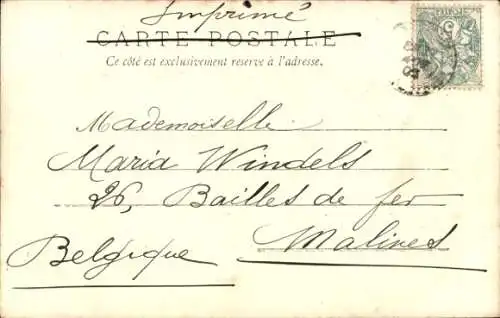 Imprimé
CARTE POSTALE
Ce côté est exclusivement reservé à l'adresse.
Mademoiselle
Maria Windels
26, Bailles de fer
Malines
Belgique